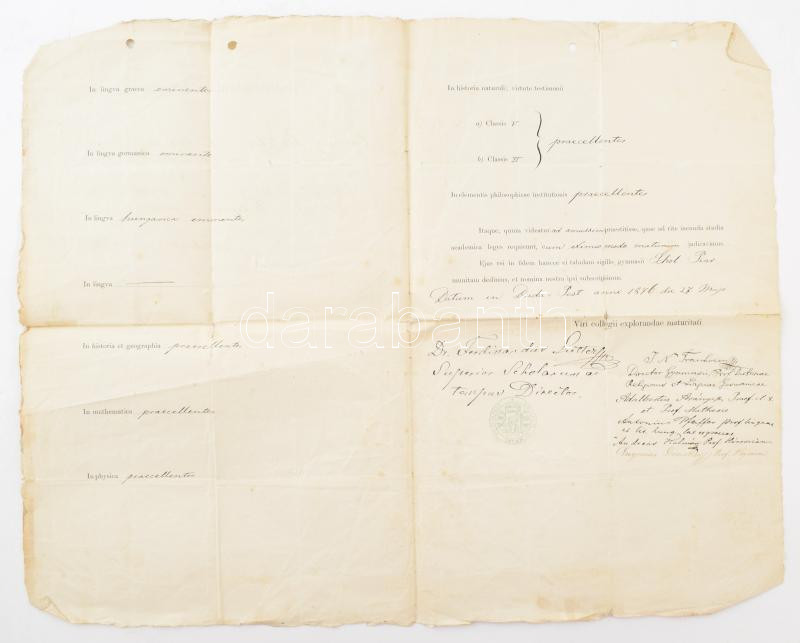 In lingva graeca eminenter
In lingva germanica eminenter
In lingva hungarica eminenter
In lingva
In historia et geographia praecellenter
In mathematica praecellenter
In physica praecellenter
In historia naturali; virtute testimonii
a) Classis V
b) Classis VI
praecellenter
In elementis philosophiae institutionis praecellenter
Itaque, quum videatur ad amussim praestitisse, quae ad rite ineunda studia
academica leges requirunt, eum eximio modo maturum judicavimus.
Ejus rei in fidem hancce ei tabulam sigillo gymnasii Schol Piar
munitam dedimus, et nomina nostra ipsi subscripsimus.
Datum in Buda-Pest anno 1876 die 27
Viri collegii explorandae maturitati
Dr. Ferdinandus
Superior Scholarum ad
tempus Director.
Director Gymnasii, Prof. Doctrinae
Religionis et Linguae Germanicae
Adalbertus Prof.
et Prof. Mathess
Antonius Pfeiffer prof linguae
et lit. hung.
Andreas Prof.
Prof.
darabanth